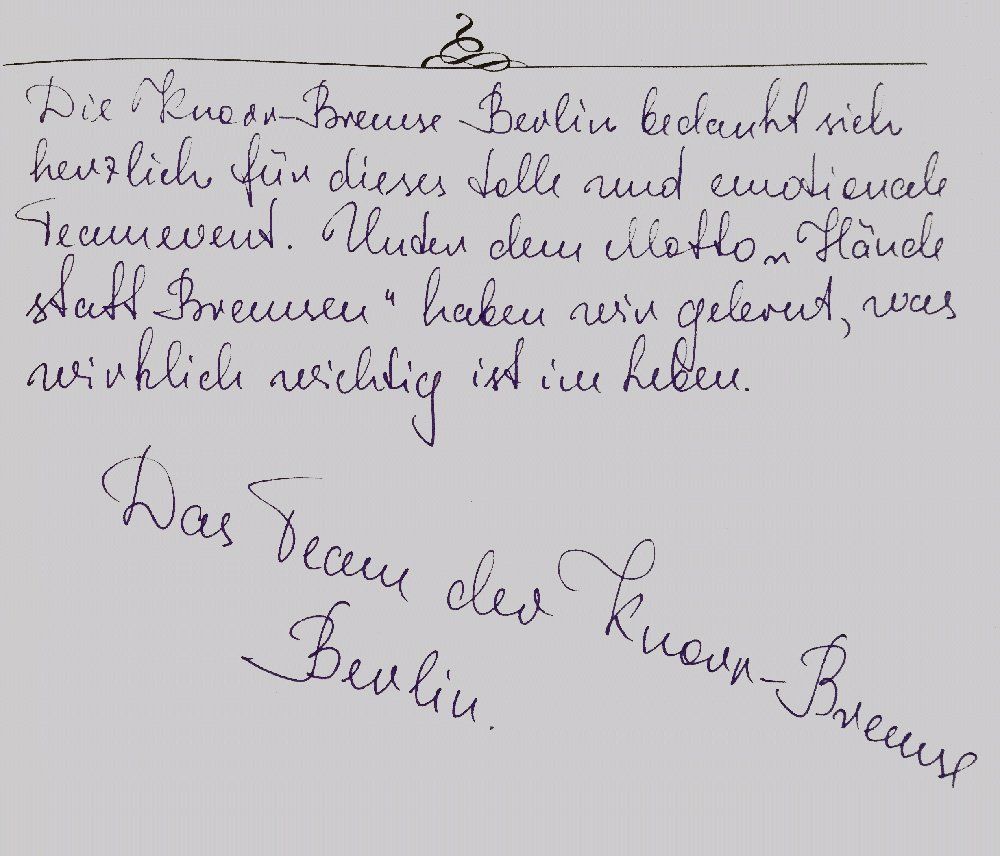 Die Knorr-Bremse Berlin bedankt sich
herzlich für dieses tolle und emotionale
Teamevent. Unter dem Motto „Hände
statt Bremsen“ haben wir gelernt, was
wirklich wichtig ist im Leben.
Das Team der Knorr-Bremse
Berlin.